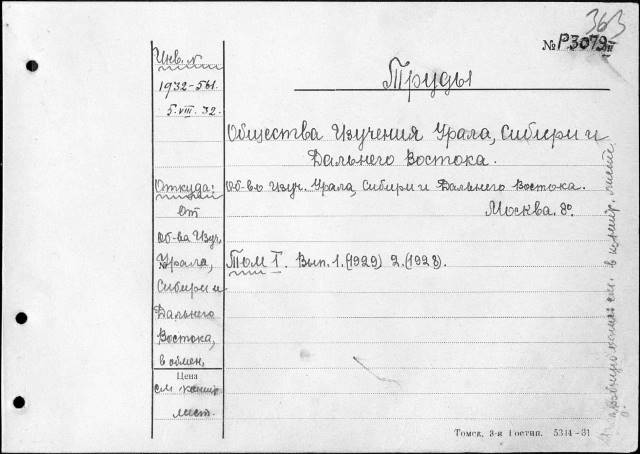 363
№ Р3079 III
Инв. №
1932-561.
5. VIII. 32.
Труды
Общества Изучения Урала, Сибири и
Дальнего Востока.
Откуда:
От
Об-ва Изуч.
Урала,
Сибири и
Дальнего
Востока,
в обмен,
Об-во Изуч. Урала, Сибири и Дальнего Востока.
Москва. 8º.
Том I. Вып. 1. (1929) 2. (1928).
Цена
см. контр.
лист.
см. в контр. листе
Томск, 3-я Гостип. 5314-31